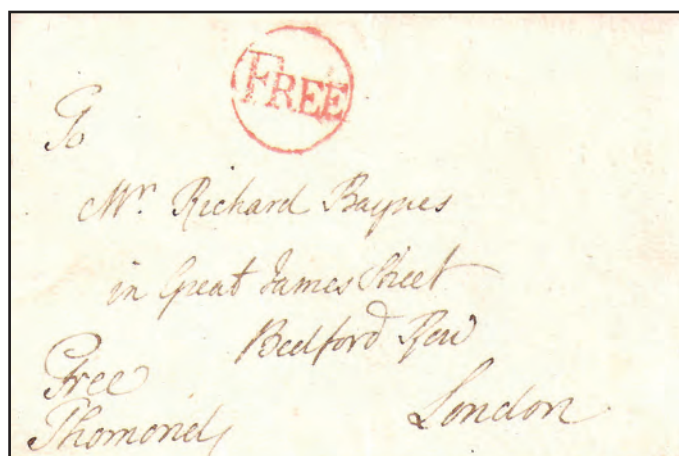 FREE
To
Mr. Richard Baynes
in Great James Street
Bedford Row
London
Free
Thomond